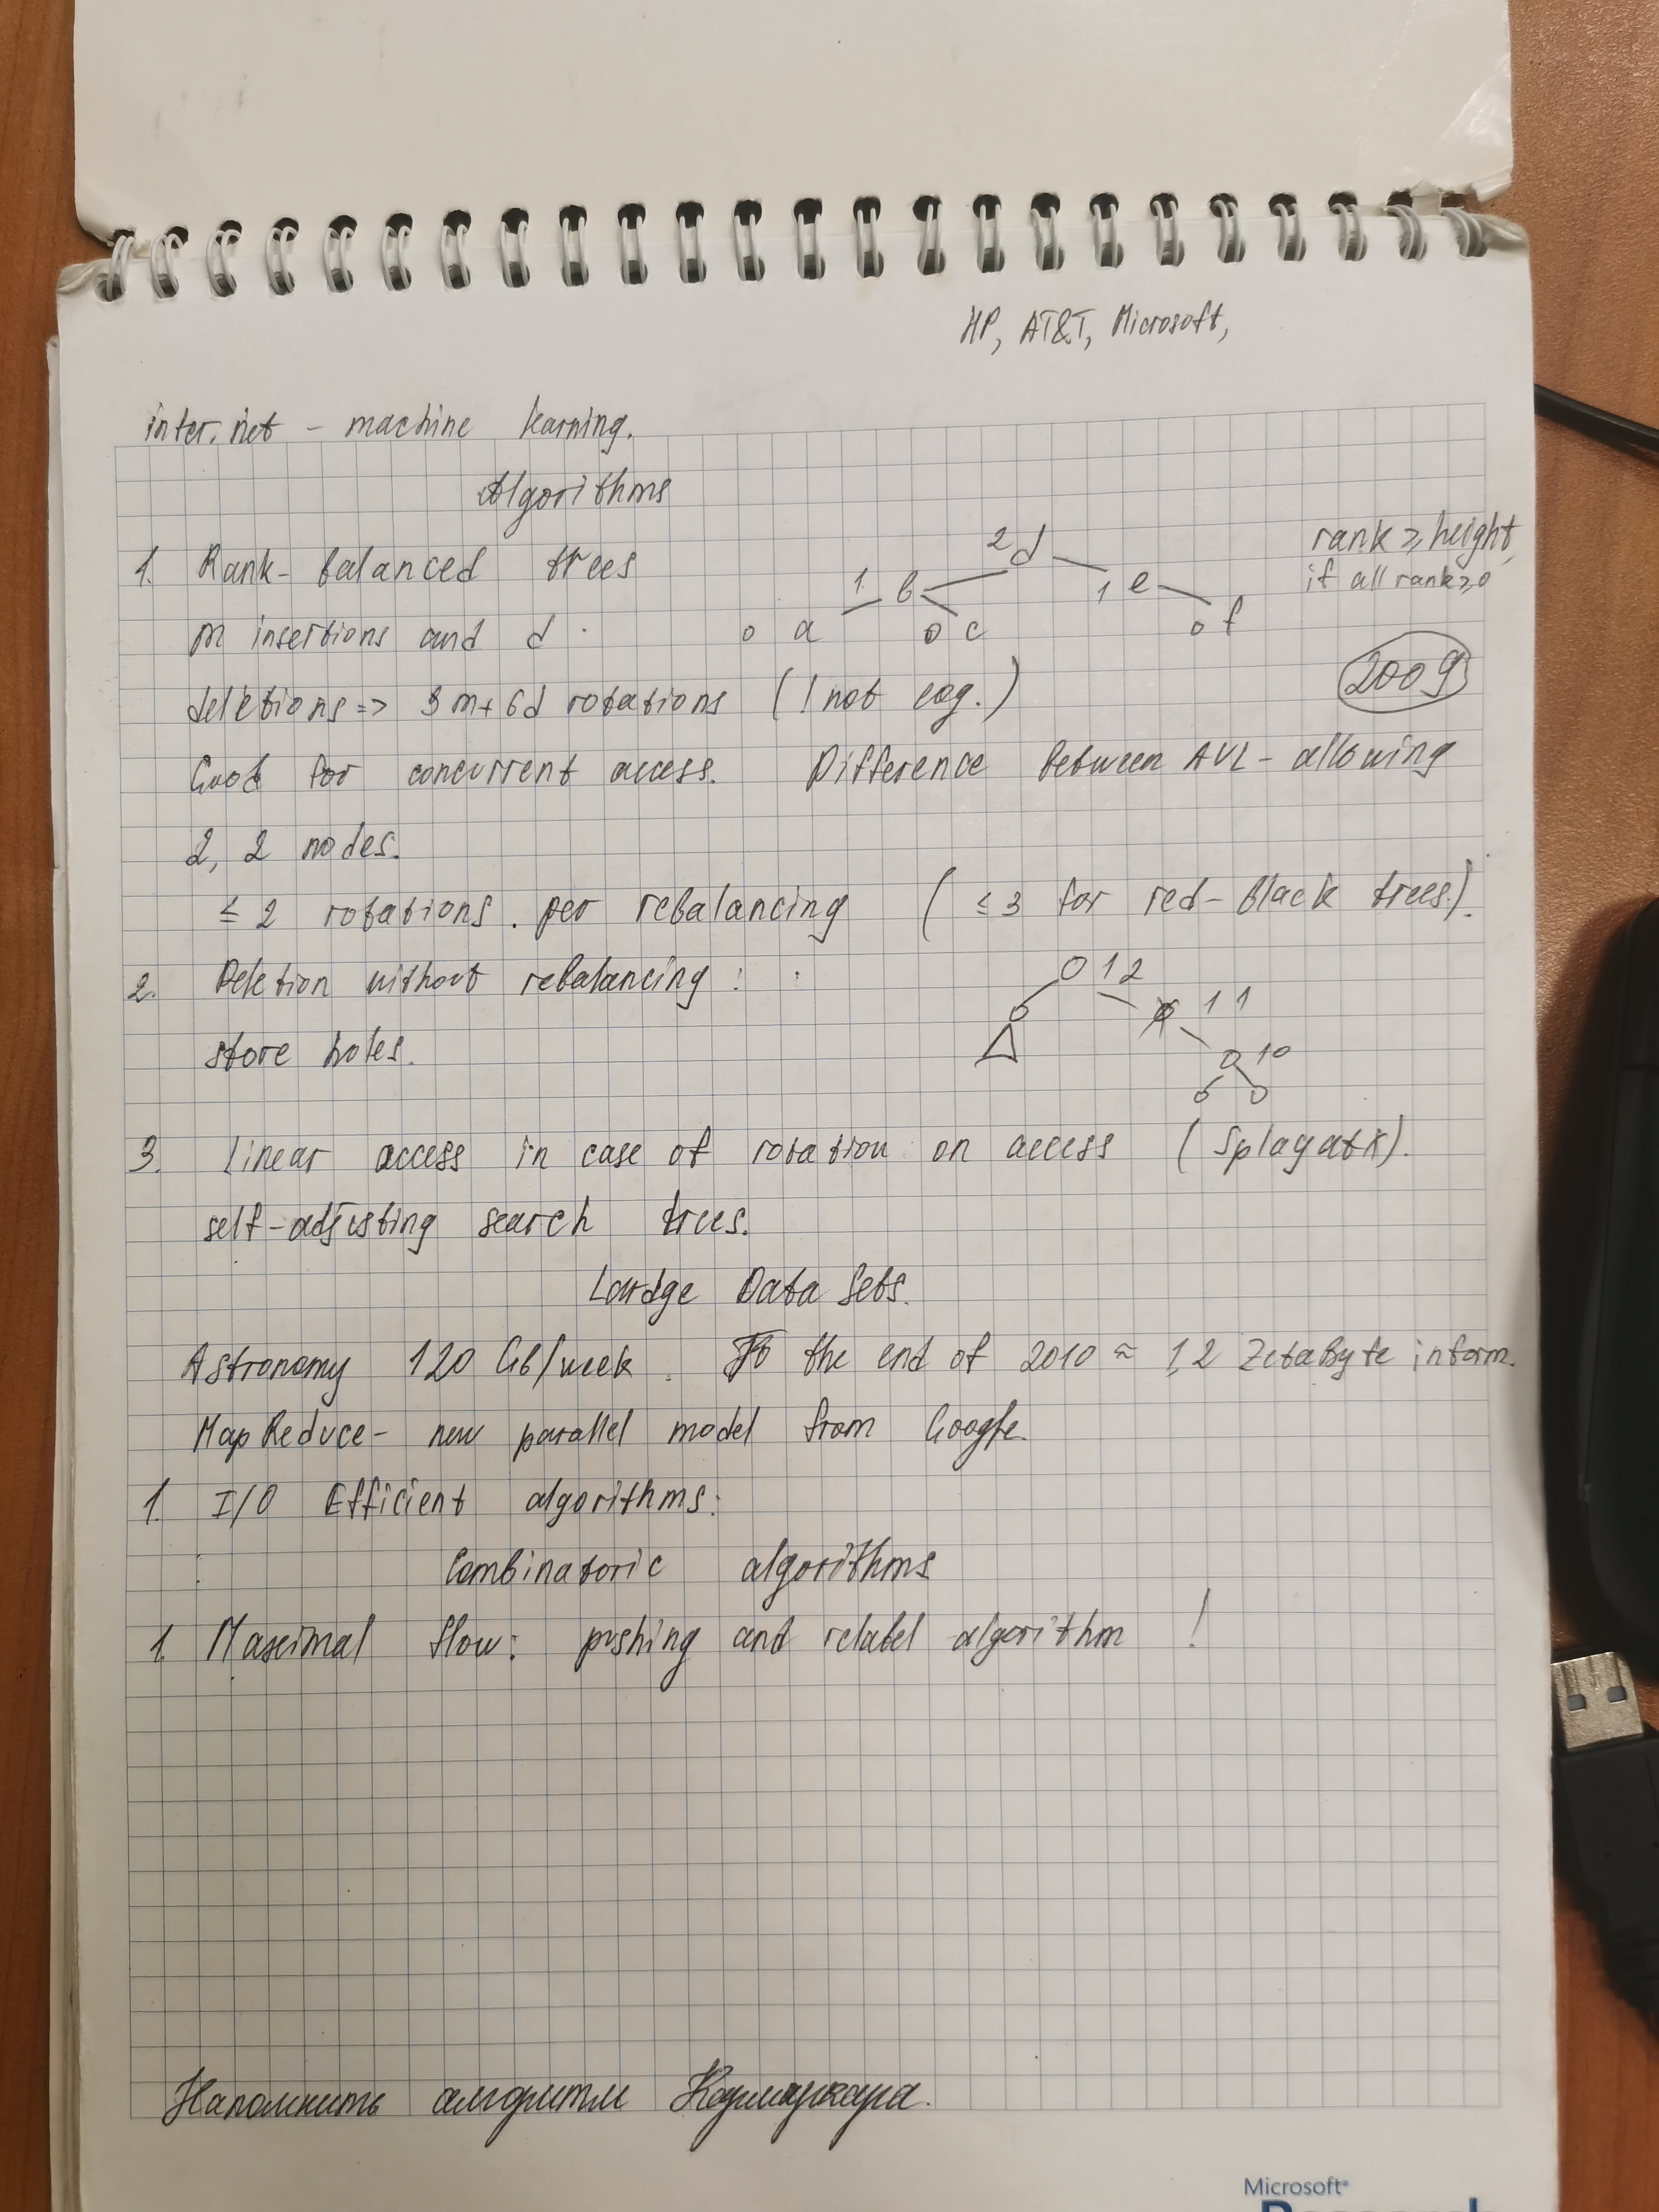 HP, AT&T, Microsoft,
inter.net - machine learning.
Algorithms
1. Rank-balanced trees
2 d
rank ≥ height,
if all rank ≥ 0
1 b
1 e
0 a
0 c
0 f
m insertions and d
2009
deletions => 3m+6d rotations (! not log.)
Good for concurrent access. Difference between AVL - allowing
2, 2 nodes.
≤ 2 rotations. per rebalancing (≤ 3 for red-black trees).
2. Deletion without rebalancing:
12
11
10
store holes.
3. Linear access in case of rotation on access
self-adjusting search trees.
Lardge Data Sets.
Astronomy 120 Gb/week. To the end of 2010 ≈ 1,2 ZetaByte inform.
MapReduce - new parallel model from Google
1. I/O Efficient algorithms:
Combinatoric algorithms
1. Maximal flow: pushing and relabel algorithm !
Напомнить алгоритм Кармаркара.
Microsoft
Research